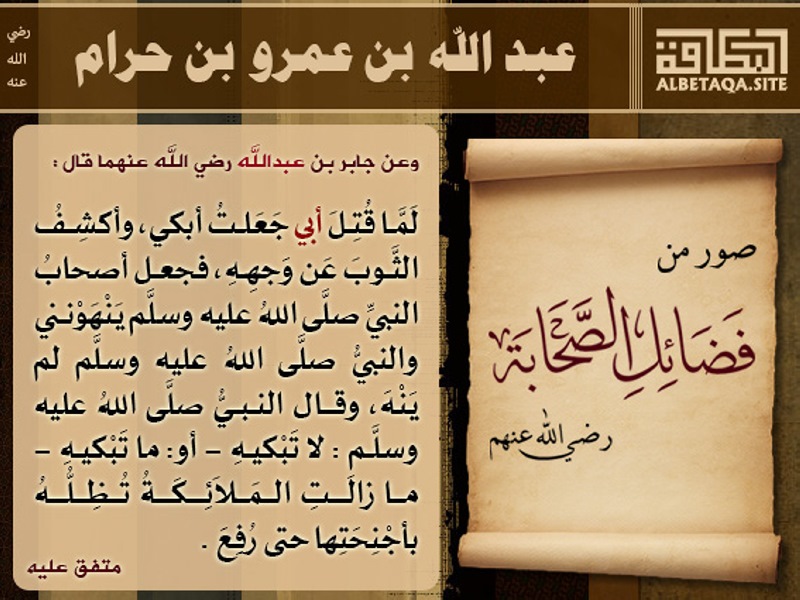 عبد الله بن عمرو بن حرام
رضي
الله
عنه
البطاقة
ALBETAQA.SITE
صور من
فَضَائِلِ الصَّحَابَة
رضي الله عنهم
وعن جابر بن عبدالله رضي الله عنهما قال :
لَمَّا قُتِلَ أبي جَعَلتُ أبكي، وأكشِفُ
الثَّوبَ عَن وَجهِهِ، فجعل أصحابُ
النبيِّ صلَّى اللهُ عليه وسلَّم يَنْهَوْنني
والنبيُّ صلَّى اللهُ عليه وسلَّم لم
يَنْهَ، وقال النبيُّ صلَّى اللهُ عليه
وسلَّم : لا تَبْكيهِ – أو: ما تَبْكيهِ –
ما زالَتِ المَلاَئِكَةُ تُظِلُّهُ
بأجْنِحَتِها حتى رُفِعَ .
متفق عليه